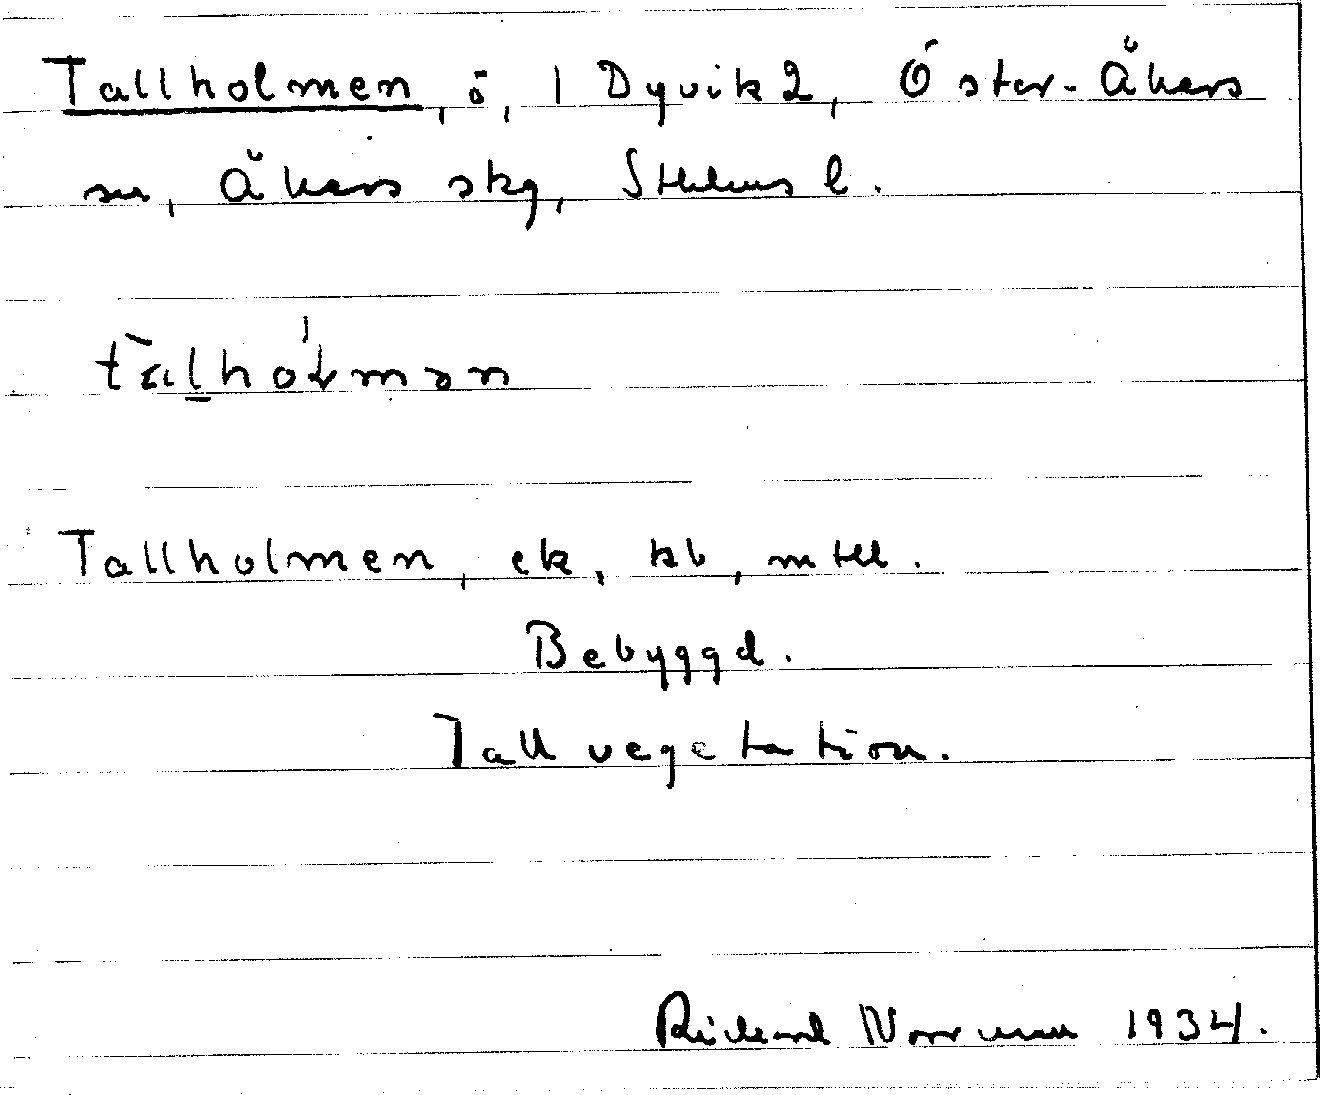 Tallholmen, ö, 1 Dyvik 2, Öster-Åkers
sn, Åkers skg, Sthlms l.
tàlhól̵mən
Tallholmen, ek, kb, mtll.
Bebyggd.
Tallvegetation.
Richard Norrman 1934.